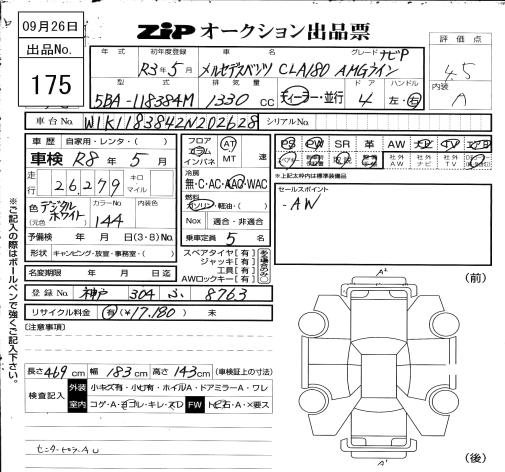 09月26日
出品No.
175
ZIP オークション出品票
年式 初年度登録 車名 グレード ナビP
R3年5月 メルセデスベンツ CLA180 AMGライン
評価点
4.5
内装
A
型式 排気量 ドア ハンドル
5BA-118384M 1330 cc ディーラー・並行 4 左・右
車台No. W1K1183842N202628 シリアルNo.
車歴 自家用・レンタ・( )
車検 R8年5月
走行 26,279 キロ マイル
色 デジタルホワイト (元色) カラーNo. 144 内装色
予備検 年 月 日(3・8)No.
形状 キャンピング・放宣・事務室・( )
名変期限 年 月 日迄
フロア コラム インパネ AT MT 速
冷房 無・C・AC・AAC・WAC
燃料 ガソリン・軽油・( )
Nox 適合・非適合
乗車定員 5 名
スペアタイヤ[有]
ジャッキ[有]
工具[有]
AWロックキー[有]
PS PW SR 革 AW ナビ TV エアB
社外AW 社外ナビ 社外TV
※上記太枠内は標準装備品
セールスポイント
・AW
登録No. 神戸 304 ふ 8763
リサイクル料金 有(¥17,180) 未
[注意事項]
長さ469cm 幅183cm 高さ143cm (車検証上の寸法)
検査記入 外装 小キズ有・小ヘコ有・ホイルA・ドアミラーA・ワレ
室内 コゲ・A・ヨゴレ・キレ・スD FW トビ石・A・X要ス
センターコンソールAU
※ご記入の際はボールペンで強くご記入下さい。
(前)
A2
A1
(後)